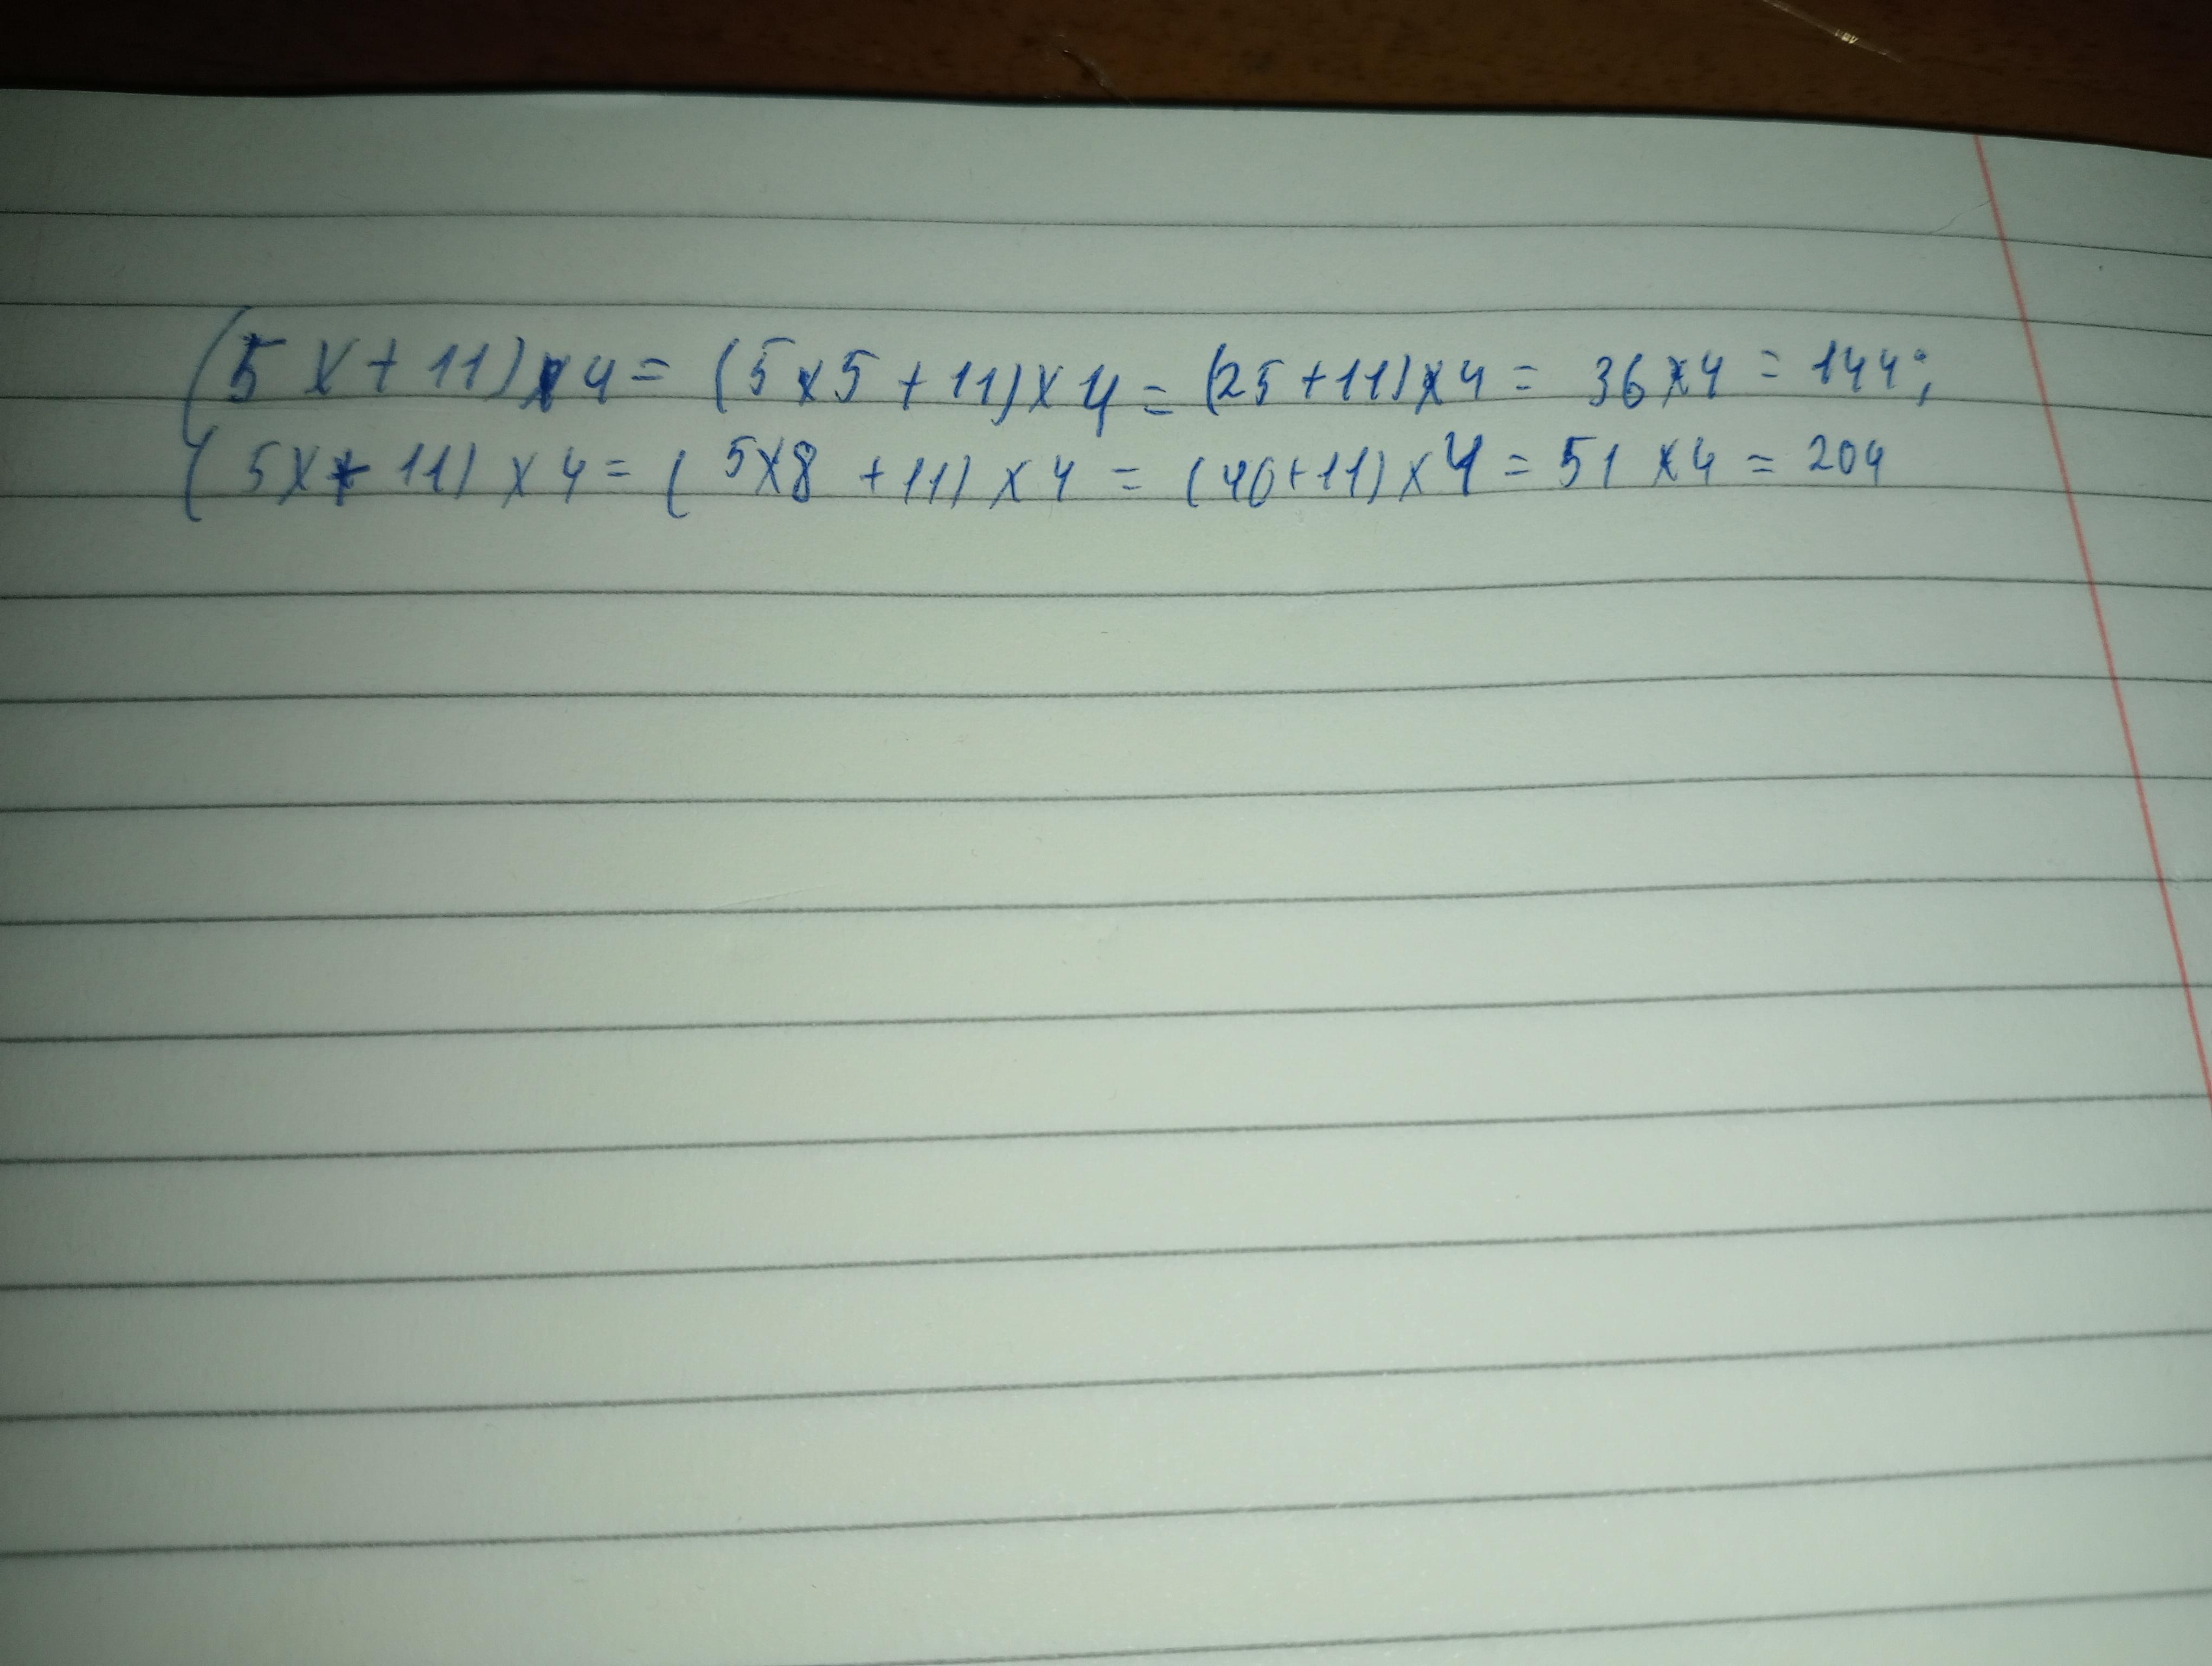 (5x+11)x4=(5x5+11)x4=(25+11)x4=36x4=144;
(5x+11)x4=(5x8+11)x4=(40+11)x4=51x4=204